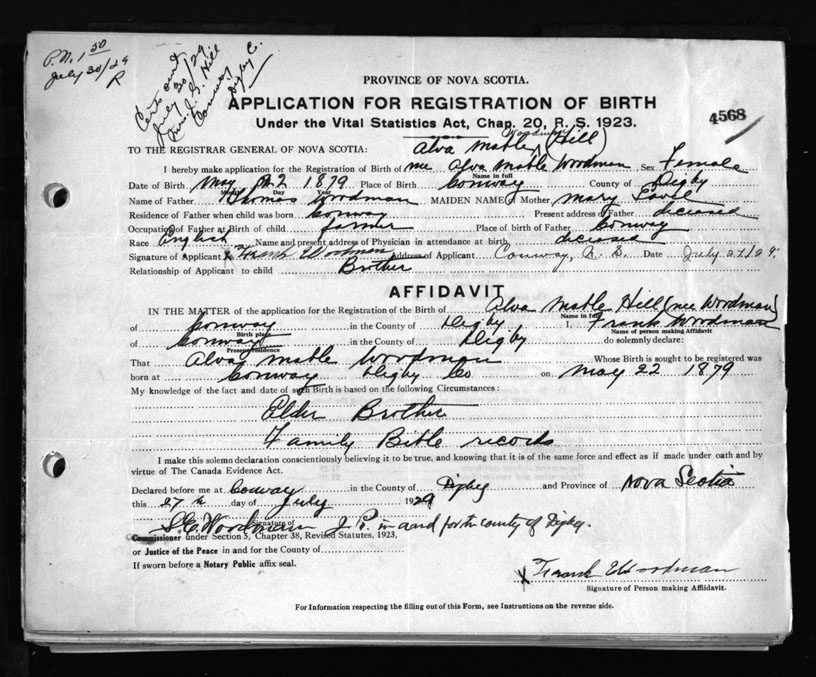 P.N. 1 50
July 30/29
R
Certs out
July 30/29
Hill
Conway
Digby C.
PROVINCE OF NOVA SCOTIA.
APPLICATION FOR REGISTRATION OF BIRTH
Under the Vital Statistics Act, Chap. 20, R. S. 1923.
4568
TO THE REGISTRAR GENERAL OF NOVA SCOTIA: Alva Mable (Hill)
I hereby make application for the Registration of Birth of nee Alva Mable Woodman Sex Female
Name in full
Date of Birth May 22 1879 Place of Birth Conway County of Digby
Month Day Year
Name of Father Thomas Woodman MAIDEN NAME of Mother Mary
Residence of Father when child was born Conway Present address of Father deceased
Occupation of Father at Birth of child farmer Place of birth of Father Conway
Race English Name and present address of Physician in attendance at birth deceased
Signature of Applicant X Frank Woodman Address of Applicant Conway, N. S. Date July 27/29.
Relationship of Applicant to child Brother
AFFIDAVIT
IN THE MATTER of the application for the Registration of the Birth of Alva Mable Hill (nee Woodman)
Name in full
of Conway in the County of Digby I, Frank Woodman
Birth place Name of person making Affidavit
of Conway in the County of Digby do solemnly declare:
Present residence
That Alva Mable Woodman Whose Birth is sought to be registered was
born at Conway Digby Co on May 22 1879
My knowledge of the fact and date of such Birth is based on the following Circumstances:
Elder Brother
Family Bible records
I make this solemn declaration conscientiously believing it to be true, and knowing that it is of the same force and effect as if made under oath and by
virtue of The Canada Evidence Act.
Declared before me at Conway in the County of Digby and Province of Nova Scotia
this 27th day of July 1929
S.E. Woodman J. P. in and for the county of Digby.
Signature of
Commissioner under Section 5, Chapter 38, Revised Statutes, 1923,
or Justice of the Peace in and for the County of
If sworn before a Notary Public affix seal.
X Frank Woodman
Signature of Person making Affidavit.
For Information respecting the filling out of this Form, see Instructions on the reverse side.